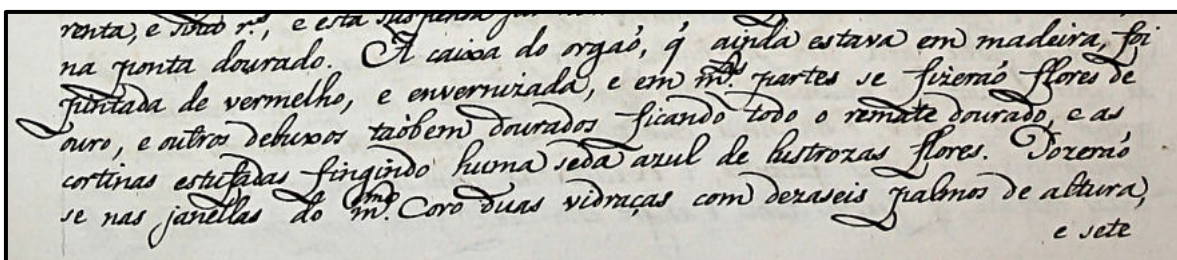 renta, e sinco r.s, e está suspensa
na ponta dourado. A caixa do orgaõ, q̃ ainda estava em madeira, foi
pintada de vermelho, e envernizada, e em m.tas partes se fizeraõ flores de
ouro, e outros debuxos taõbem dourados ficando todo o remate dourado, e as
cortinas estufadas fingindo huma seda azul de lustrozas flores. Pozeraõ
se nas janellas do m.mo Coro duas vidraças com dezaseis palmos de altura,
e sete